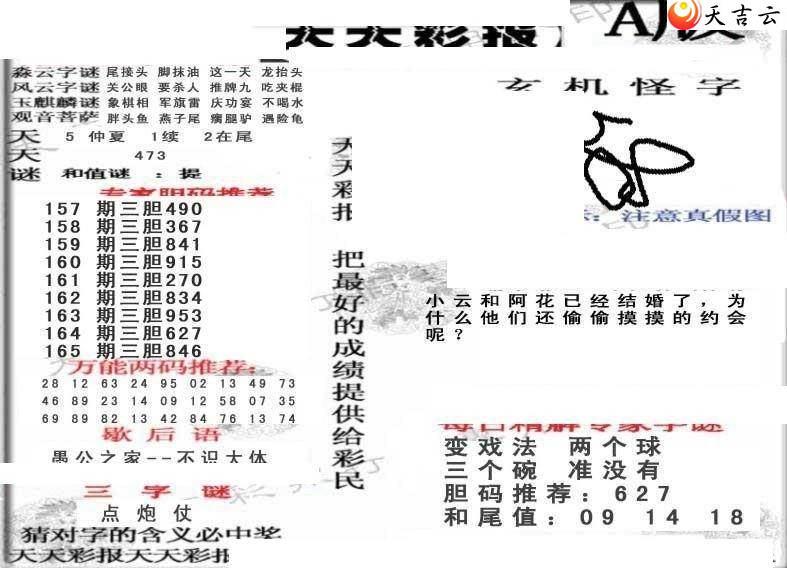 天吉云
天天彩报
森云字谜 尾接头 脚抹油 这一天 龙抬头
风云字谜 关公眼 要杀人 推牌九 吃夹棍
玉麒麟谜 象棋相 军旗雷 庆功宴 不喝水
观音菩萨 胖头鱼 燕子尾 瘸腿驴 遇险龟
天 5 仲夏 1续 2在尾
天 473
谜 和值谜 : 提
专家胆码推荐
157 期三胆490
158 期三胆367
159 期三胆841
160 期三胆915
161 期三胆270
162 期三胆834
163 期三胆953
164 期三胆627
165 期三胆846
万能两码推荐:
28 12 63 24 95 02 13 49 73
46 89 23 14 09 12 58 07 35
69 89 82 13 42 84 76 13 74
歇后语
愚公之家--不识大体
三字谜
点炮仗
猜对字的含义必中奖
天天彩报天天彩报
天天彩报
把最好的成绩提供给彩民
玄机怪字
: 注意真假图
小云和阿花已经结婚了,为
什么他们还偷偷摸摸的约会
呢?
每日精解专家字谜
变戏法 两个球
三个碗 准没有
胆码推荐:627
和尾值:09 14 18